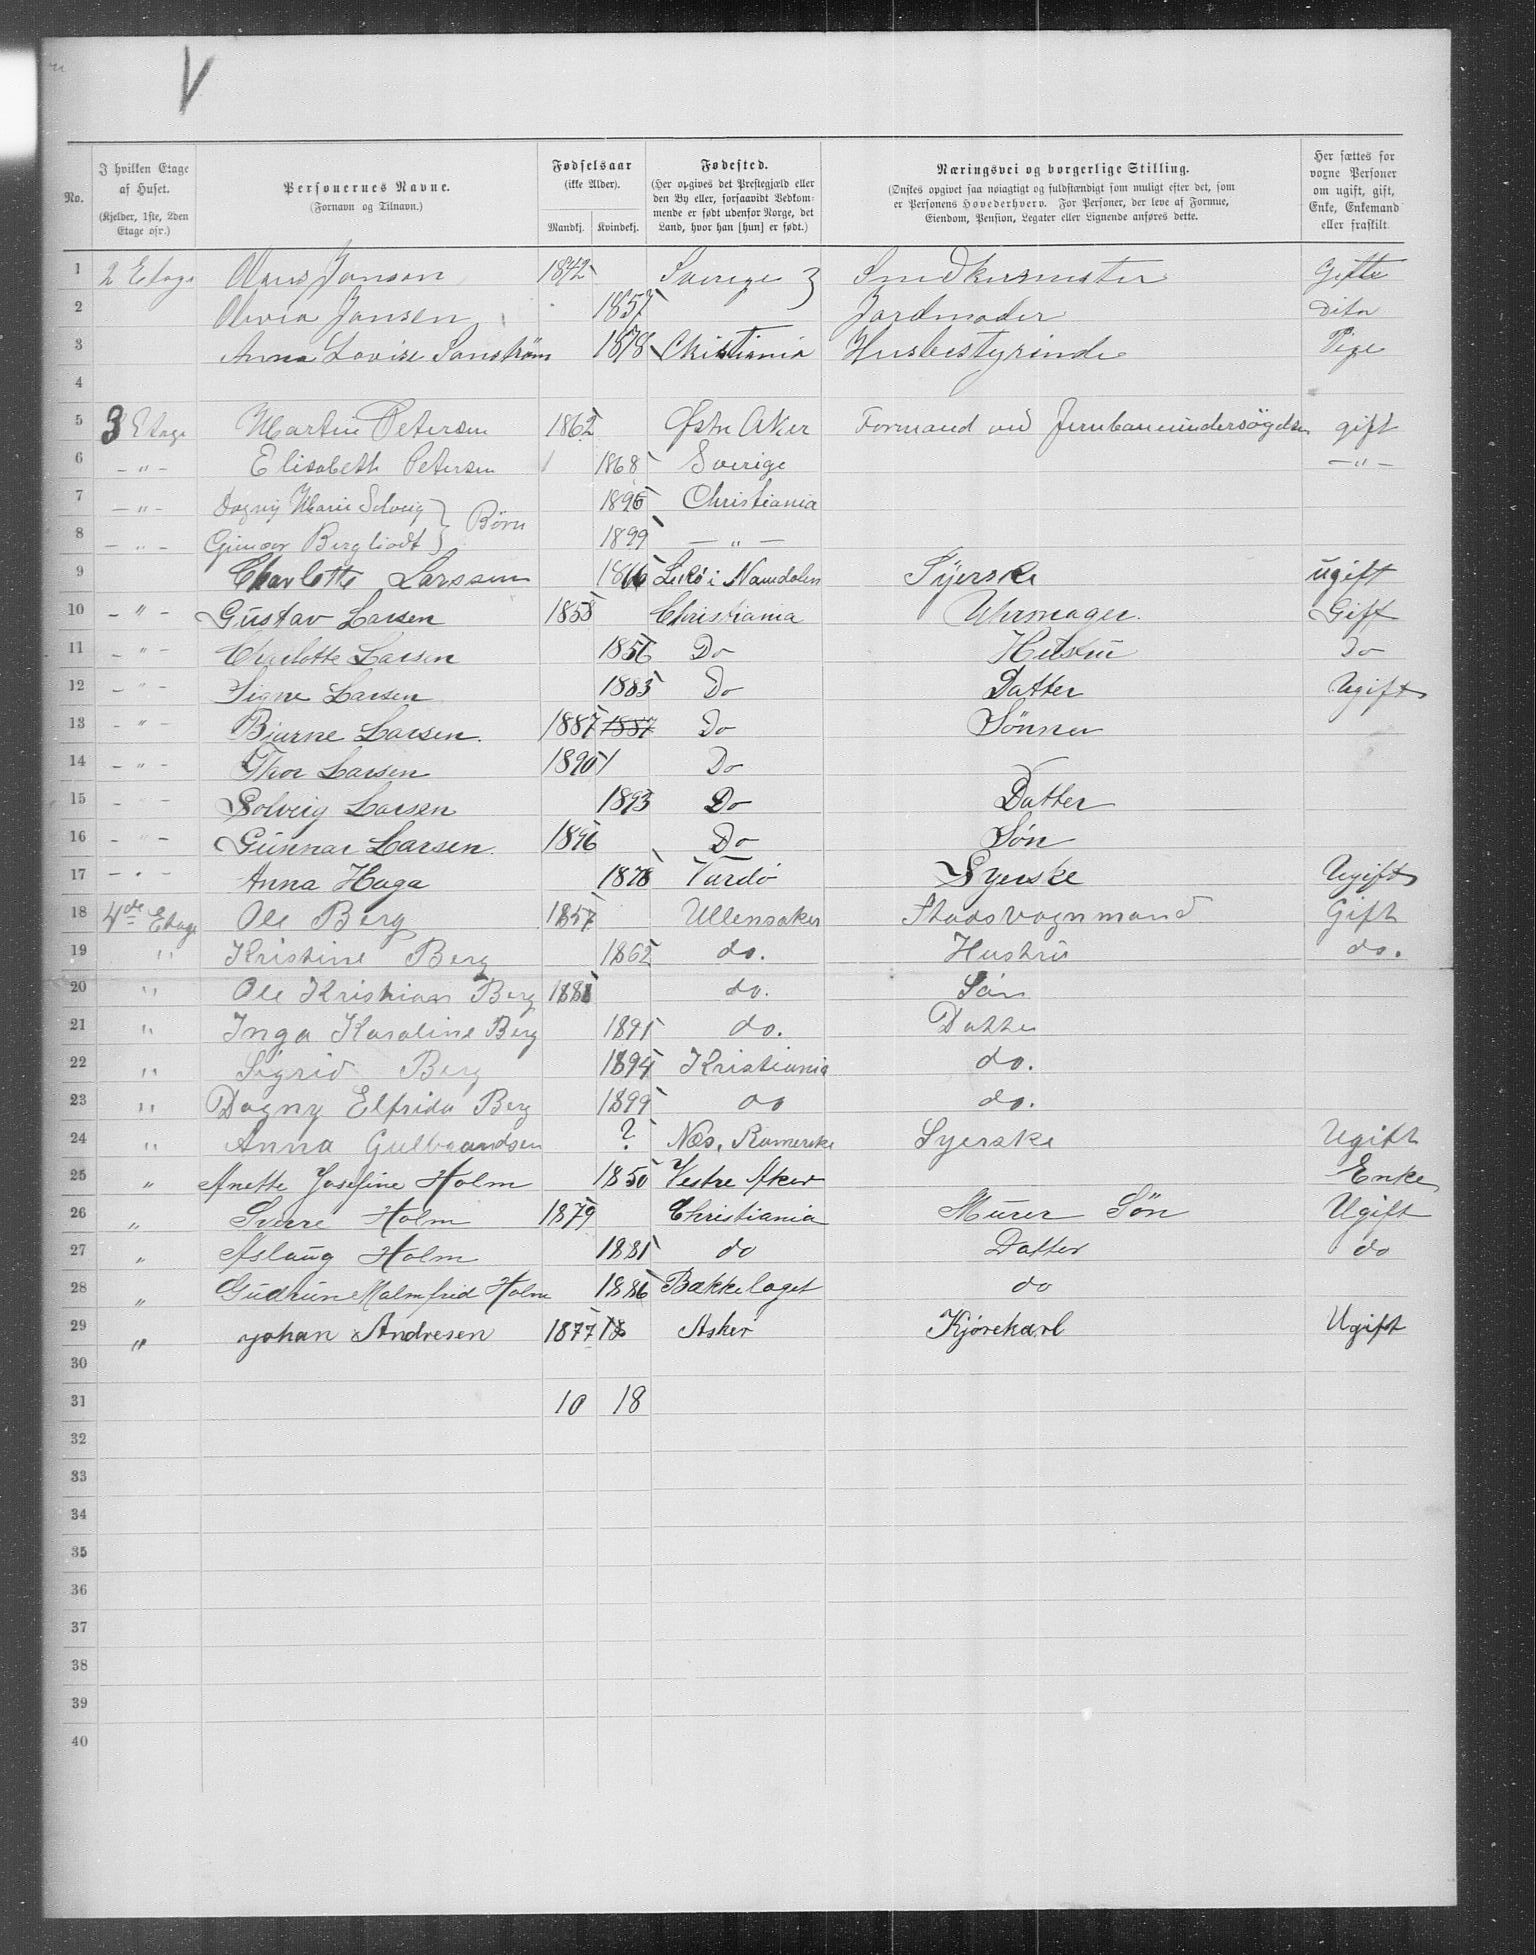 V
No. | I hvilken Etage af Huset. (Kjelder, 1ste, 2den Etage osv.) | Personernes Navne. (Fornavn og Tilnavn.) | Fødselsaar (ikke Alder). Mandkj. Kvindekj. | Fødested. (Her opgives det Prestegjæld eller den By eller, forsaavidt Vedkommende er født udenfor Norge, det Land, hvor han [hun] er født.) | Næringsvei og borgerlige Stilling. (Ønskes opgivet saa nøiagtigt og fuldstændigt som muligt efter det, som er Personens Hovederhverv. For Personer, der leve af Formue, Eiendom, Pension, Legater eller Lignende anføres dette.) | Her sættes for voxne Personer om ugift, gift, Enke, Enkemand eller fraskilt.
1 2 Etage Jansen 1842 Sverige } Gifte
2 Olivia Jansen 1857 Jordmoder Dito
3 Anna Lovise 1878 Christiania Husbestyrinde Pige
4
5 3 Etage Martin Petersen 1862 Østre Aker Formand ved Jernbaneundersøgelsen gift
6 – " – Elisabeth Petersen 1868 Sverige – " –
7 – " – Dagny Marie Solveig } Børn 1896 Christiania
8 – " – Bergliodt } 1899 – " –
9 Charlotte Larssen 1866 Lekø i Namdalen Syerske ugift
10 – " – Gustav Larsen 1858 Christiania Uhrmager. Gift
11 – " – Charlotte Larsen 1856 Do Hustru Do
12 – " – Signe Larsen 1883 Do Datter Ugift
13 – " – Bjarne Larsen. 1887 1887 Do Sønner
14 – " – Thor Larsen 1890 Do
15 – " – Solveig Larsen 1893 Do Datter
16 – " – Gunnar Larsen. 1896 Do Søn
17 – " – Anna Haga 1878 Vardø Syerske Ugift
18 4de Etage Ole Berg 1857 Ullensaker Stadsvognmand Gift
19 " Kristine Berg 1862 do. Hustru do.
20 " Ole Kristian Berg 1888 do. Søn
21 " Inga Karoline Berg 1891 do. Datter
22 " Sigrid Berg 1894 Kristiania do.
23 " Dagny Elfrida Berg 1899 do do.
24 " Anna Gulbrandsen ? Næs, Romerike Syerske Ugift
25 " Anette Josefine Holm 1850 Vestre Aker Enke
26 " Sverre Holm 1879 Christiania Murer Søn Ugift
27 " Aslaug Holm 1881 do Datter do
28 " Gudrun Malmfrid Holm 1886 Bækkelaget do
29 " Johan Andresen 1877 18 Asker Kjørekarl Ugift
30
31 10 18
32
33
34
35
36
37
38
39
40